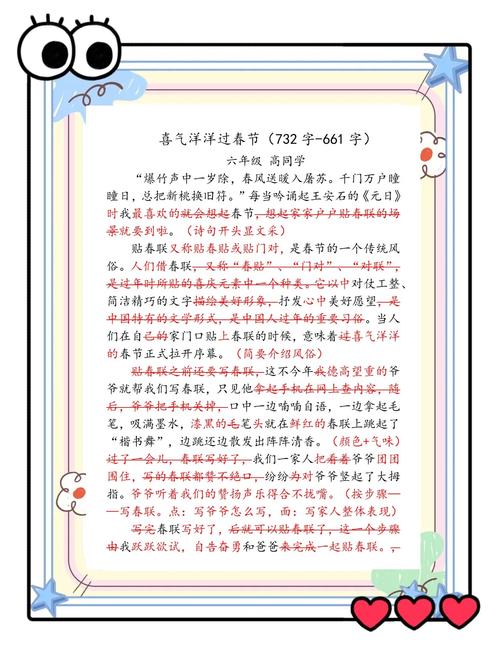 喜气洋洋过春节（732字-661字）
六年级 高同学
“爆竹声中一岁除，春风送暖入屠苏。千门万户曈
曈日，总把新桃换旧符。”每当吟诵起王安石的《元日》
时我最喜欢的就会想起春节，想起家家户户贴春联的场
景就要到啦。（诗句开头显文采）
贴春联又称贴春贴或贴门对，是春节的一个传统风
俗。人们借春联，又称“春贴”、“门对”、“对联”，
是过年时所贴的喜庆元素中一个种类。它以中对仗工整、
简洁精巧的文字描绘美好形象，抒发心中美好愿望，是
中国特有的文学形式，是中国人过年的重要习俗。当人
们在自己的家门口贴上春联的时候，意味着过喜气洋洋
的春节正式拉开序幕。（简要介绍风俗）
贴春联之前还要写春联，这不今年我德高望重的爷
爷就帮我们写春联，只见他拿起手机在网上查内容，随
后，爷爷把手机关掉，口中一边喃喃自语，一边拿起毛
笔，吸满墨水，漆黑的毛笔头就在鲜红的春联上跳起了
“楷书舞”，边跳还边散发出阵阵清香。（颜色+气味）
过了一会儿，春联写好了，我们一家人把看着爷爷团团
围住，写的春联都赞不绝口，纷纷为对爷爷竖起了大拇
指。爷爷听着我们的赞扬声乐得合不拢嘴。（按步骤—
—写春联。点：写爷爷怎么写，面：写家人整体表现）
写完春联写好了，后就可以贴春联了，这一个步骤
由我跃跃欲试，自告奋勇和爸爸来完成一起贴春联。，